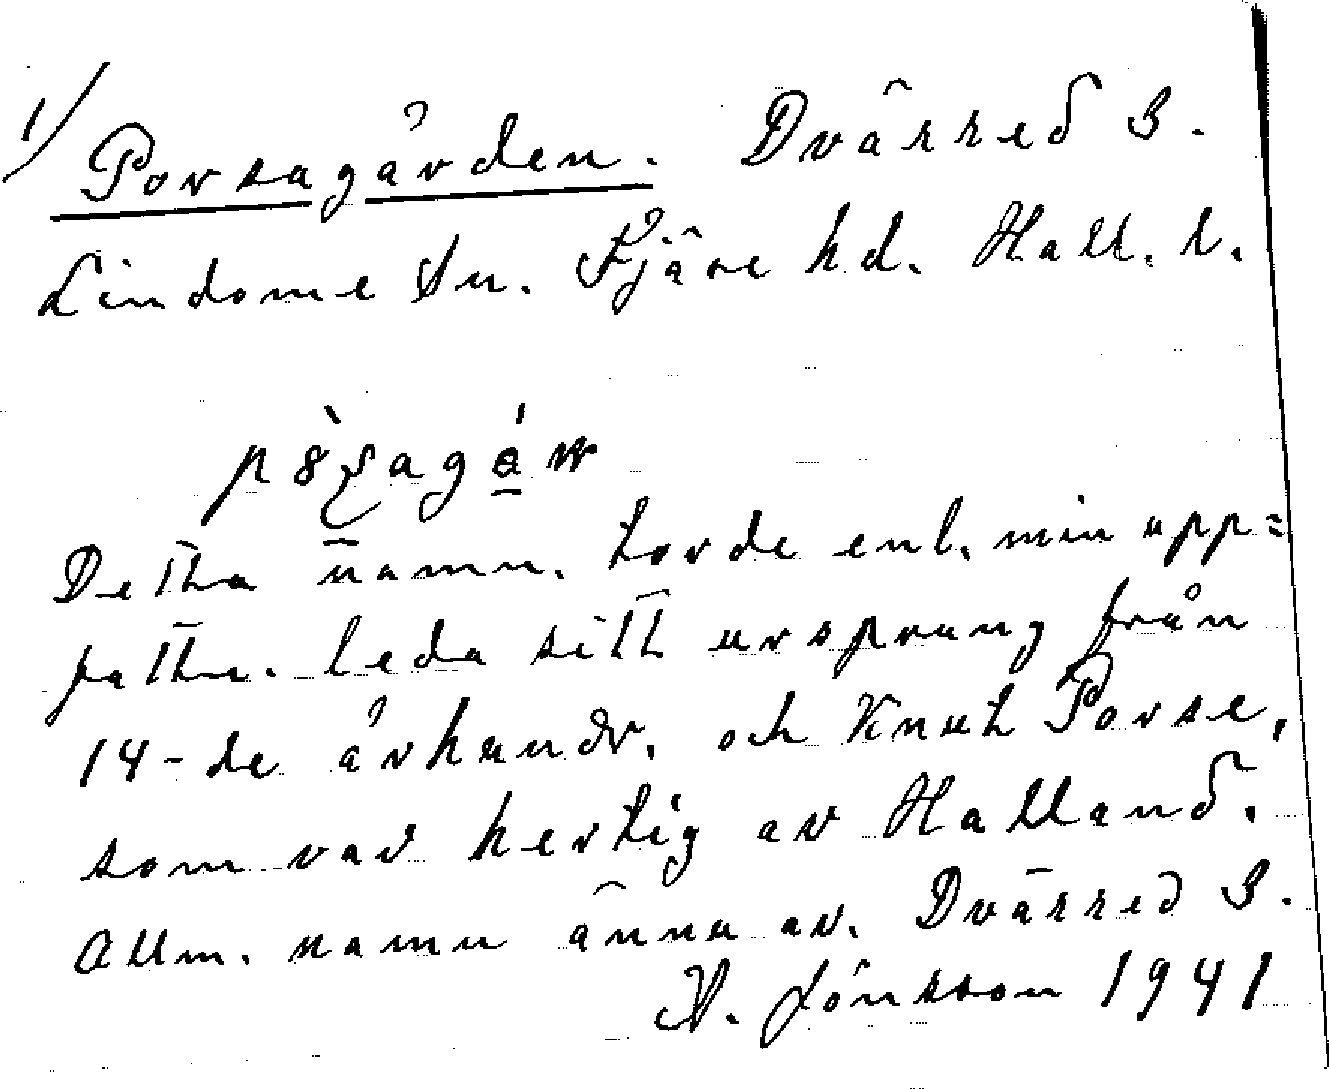 1/ Porsagården. Dvärred 3.
Lindome sn. Fjäre hd. Hall. l.
Detta namn. torde enl. min upp=
fattn. leda sitt ursprung från
14-de århundr. och Knut Porse,
som var hertig av Halland.
Allm. namn ännu av. Dvärred 3.
V. Jönsson 1941